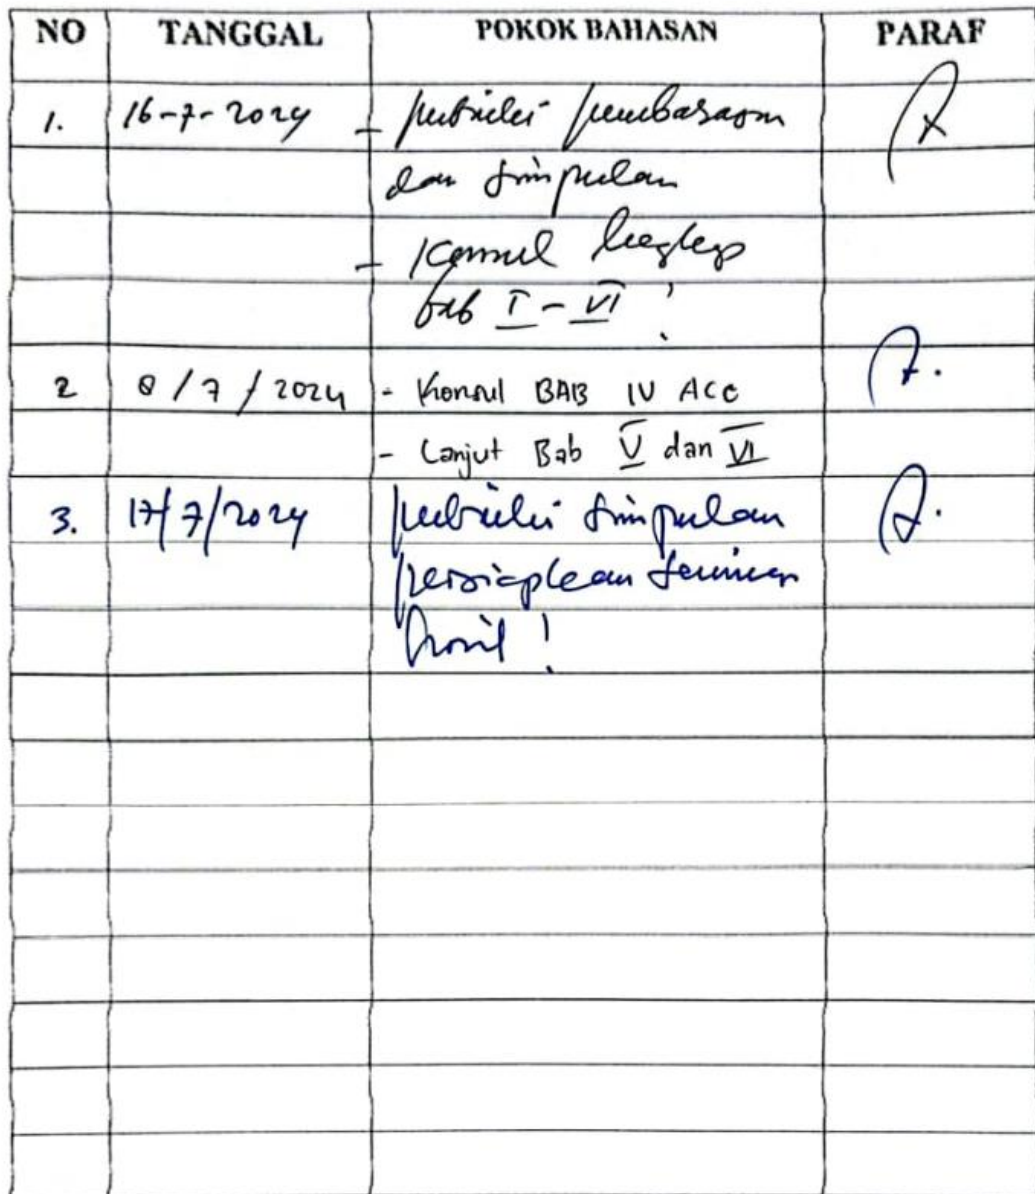 NO TANGGAL POKOK BAHASAN PARAF
1. 16-7-2024 - perbaiki pembahasan
dan simpulan
- Konsul lengkap
bab I - VI !
2 8 / 7 / 2024 - Konsul BAB IV ACC
- Lanjut Bab V dan VI
3. 17/7/2024 perbaiki simpulan
persiapkan seminar
hasil !